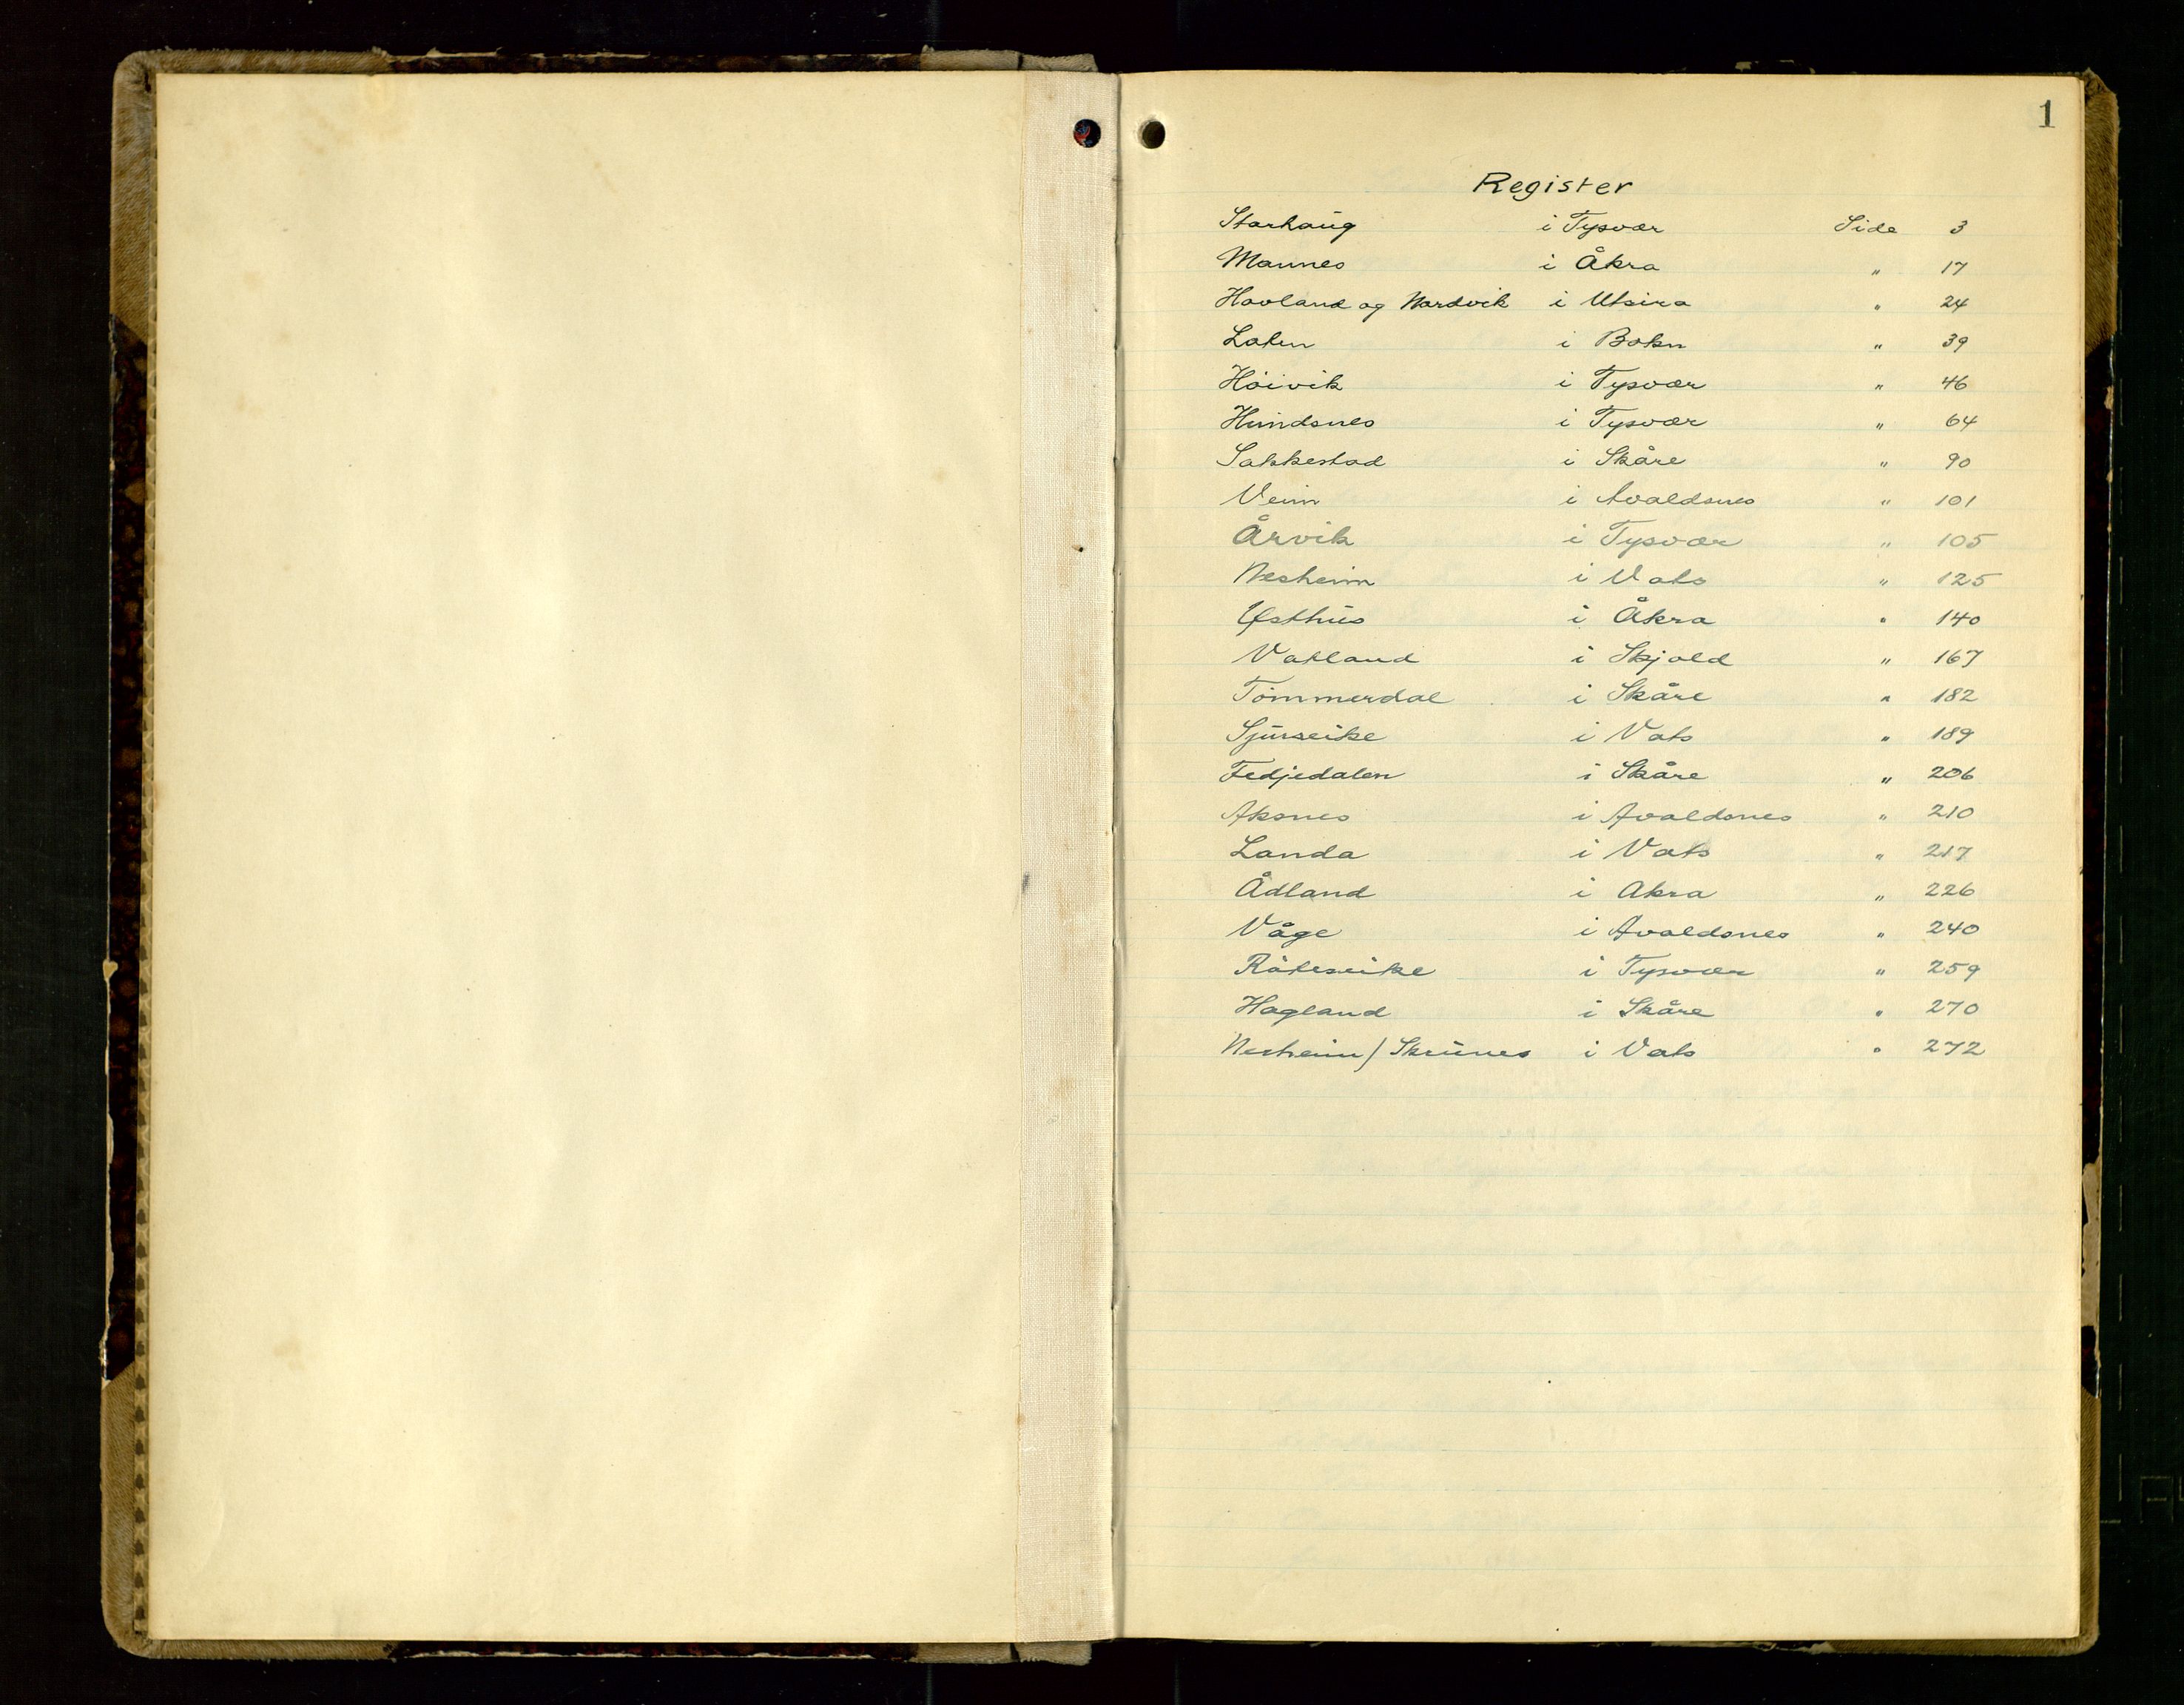 1
Register
Storhaug i Tysvær Side 3
Mannes i Åkra " 17
Hovland og Nordvik i Utsira " 24
Loten i Bokn " 39
Höivik i Tysvær " 46
Hundsnes i Tysvær " 64
Sakkestad i Skåre " 90
Veim i Avaldsnes " 101
Årvik i Tysvær " 105
Nesheim i Vats " 125
Østhus i Åkra " 140
Vatland i Skjold " 167
Tömmerdal i Skåre " 182
Sjurseike i Vats " 189
Fedjedalen i Skåre " 206
Aksnes i Avaldsnes " 210
Landa i Vats " 217
Ådland i Akra " 226
Våge i Avaldsnes " 240
i Tysvær " 259
Hagland i Skåre " 270
Nesheim / Skrunes i Vats " 272